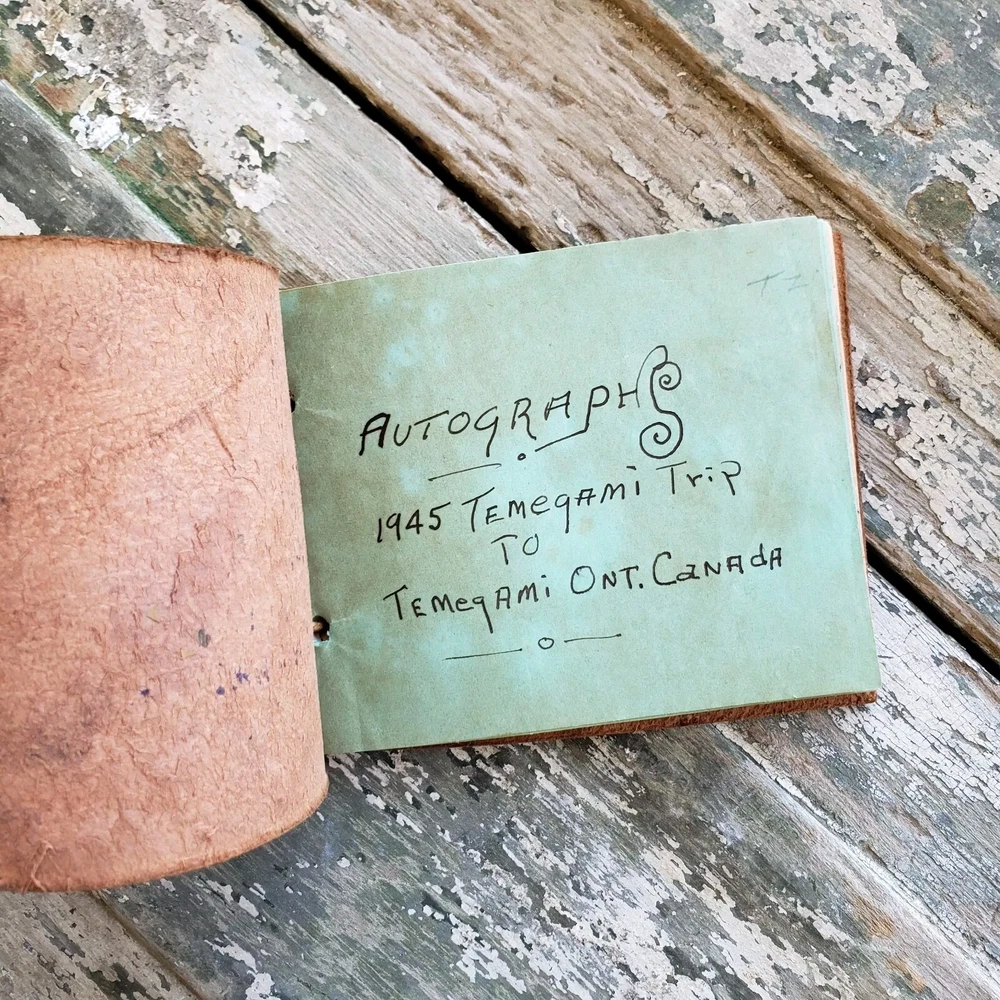 AUTOGRAPHS
1945 TEMEGAMI Trip
TO
TEMEGAMI ONT. CANADA